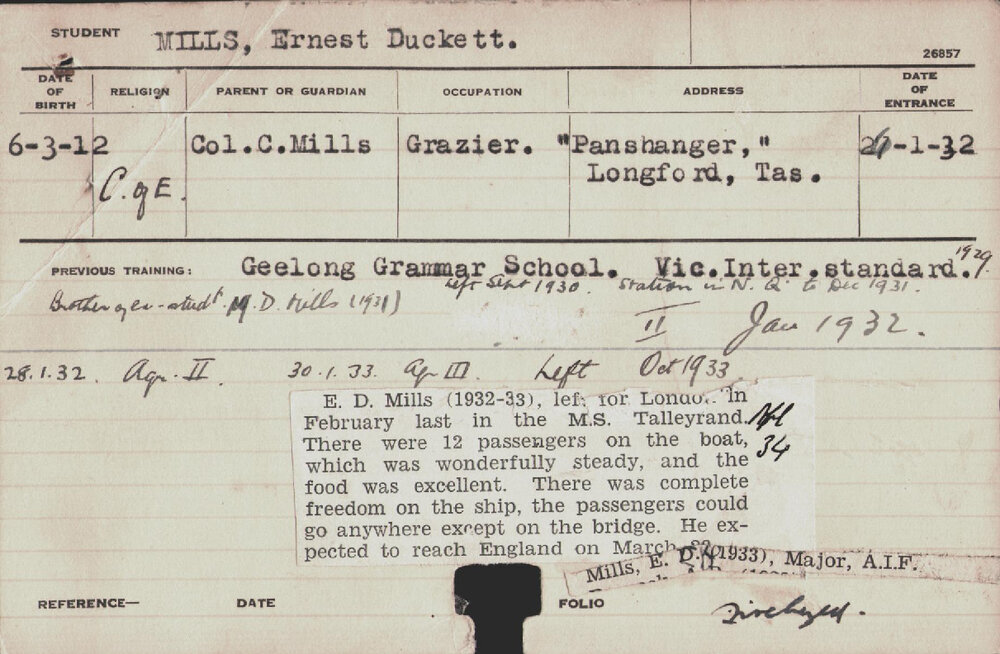 STUDENT MILLS, Ernest Duckett.
26857
DATE OF BIRTH RELIGION PARENT OR GUARDIAN OCCUPATION ADDRESS DATE OF ENTRANCE
6-3-12 C. of E. Col.C.Mills Grazier. "Panshanger," -1-32
Longford, Tas.
PREVIOUS TRAINING: Geelong Grammar School. Vic.Inter.standard. 1929.
Left Sept 1930. Station in N. Q. to Dec 1931.
Brother of ex-studt. M. D. Mills (1931)
II Jan 1932.
28.1.32. Agr. II 30.1.33. Agr III. Left Oct 1933.
E. D. Mills (1932-33), left for London in
February last in the M.S. Talleyrand.
There were 12 passengers on the boat,
which was wonderfully steady, and the
food was excellent. There was complete
freedom on the ship, the passengers could
go anywhere except on the bridge. He ex-
pected to reach England on March
34
Mills, E. D. (1933), Major, A.I.F.
REFERENCE— DATE FOLIO